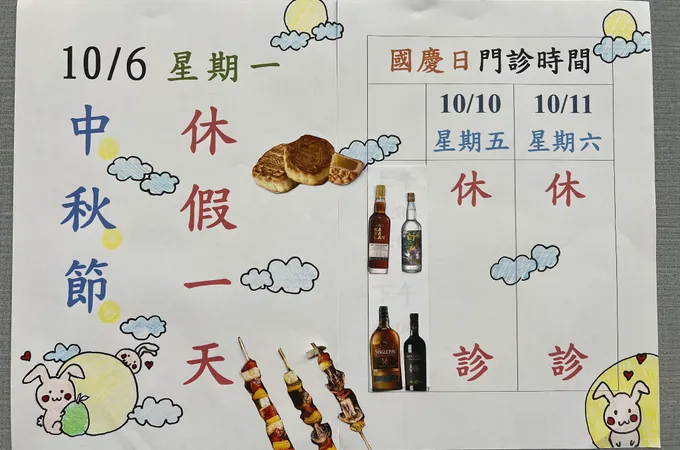 10/6 星期一
中秋節
休假一天
國慶日門診時間
10/10 10/11
星期五 星期六
休診 休診